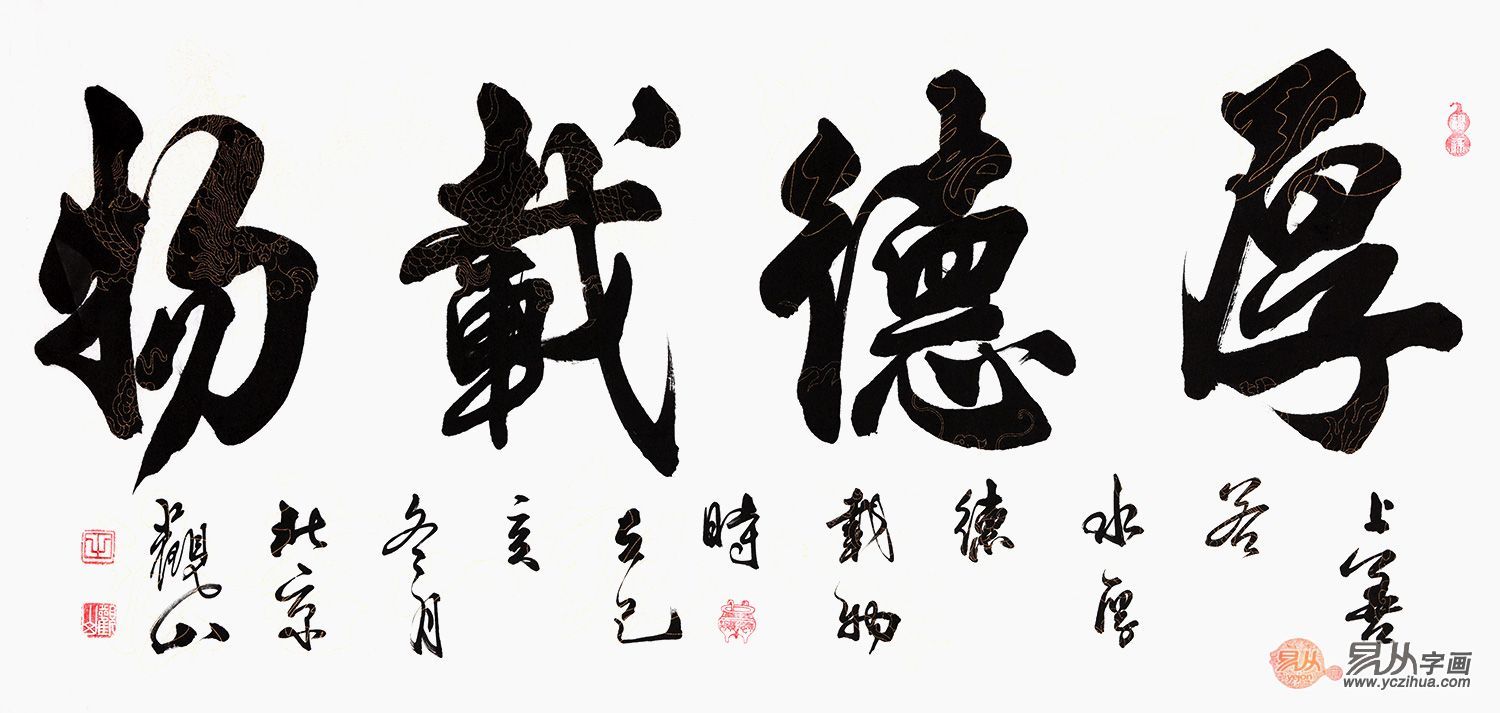 厚德載物
上善
若
水厚
德
載物
時
在己
亥
冬月
北京
觀山
易从字画
www.yczihua.com
易从